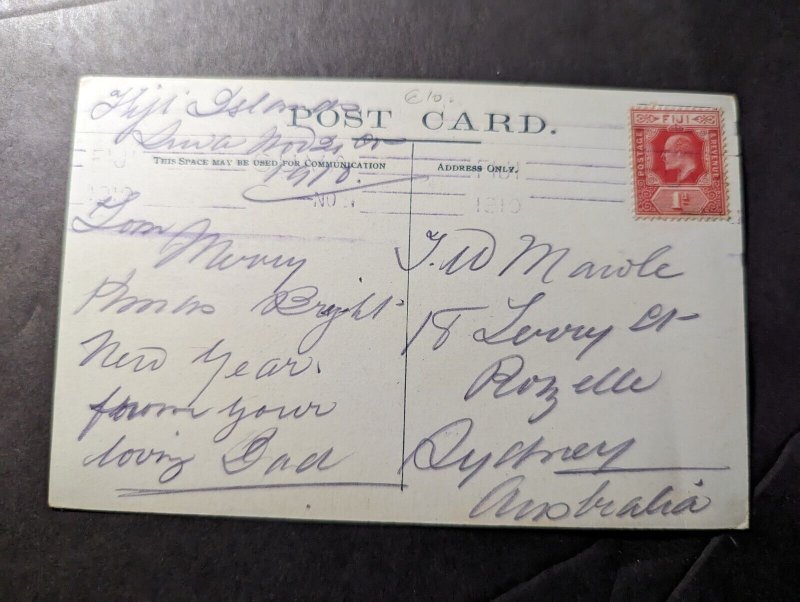 Fiji Islands
POST CARD.
Suva
THIS SPACE MAY BE USED FOR COMMUNICATION
ADDRESS ONLY.
1910.
Tom Merry
Xmas Bright
New Year.
from your
loving Dad
T. W
18 Terry St
Rozelle
Sydney
Australia
FIJI
POSTAGE
REVENUE
1d
FIJI
NO
1910